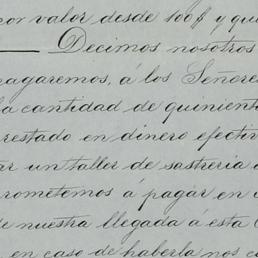 por valor desde 100$ y qui
Decimos nosotros
pagaremos, á los Señore
la cantidad de quinient
restado en dinero efectiv
ar un taller de sastreria
rometemos á pagar en
de nuestra llegada á esta
en caso de haberla nos